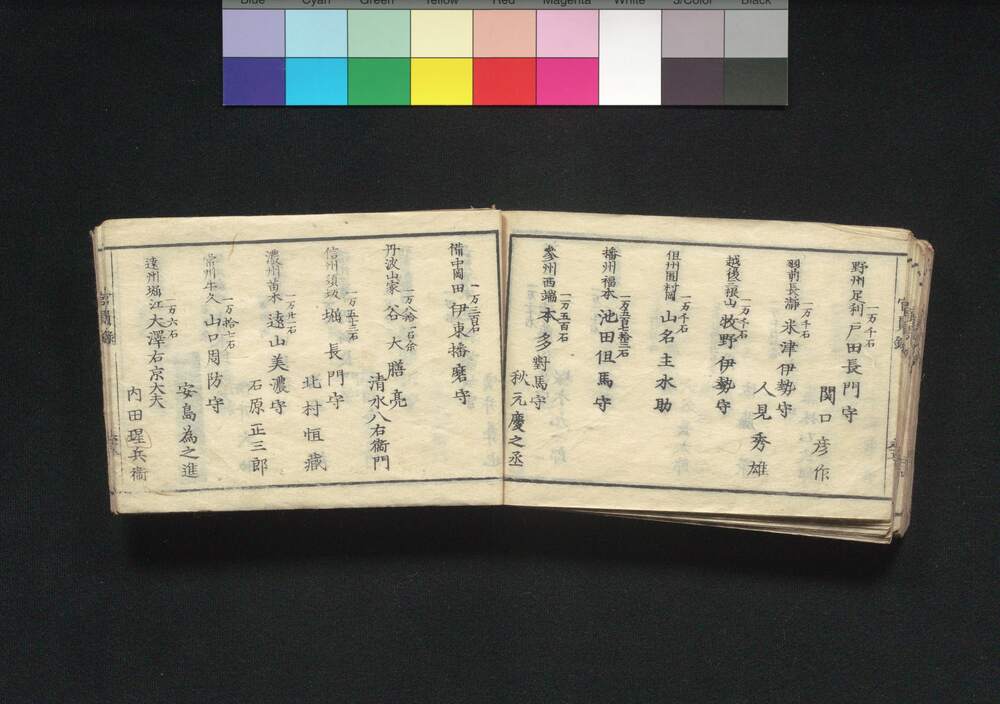 Blue Cyan Green Yellow Red Magenta White 3/Color Black
野州足利 一万千石 戸田長門守
関口彦作
羽前長瀞 一万千石 米津伊勢守
人見秀雄
越後三根山 一万千石 牧野伊勢守
但州 一万千石 山名主水助
播州福本 池田但馬守
参州西端 一万五百石 本多對馬守
秋元慶之丞
備中岡田 一万三百石 伊東播磨守
丹波山家 谷大膳亮
清水八右衞門
信州須坂 一万五十三石 堀長門守
北村恒蔵
濃州苗木 一万廿一石 遠山美濃守
石原正三郎
常州牛久 一万拾七石 山口周防守
安島為之進
遠州堀江 一万六石 大澤右京大夫
内田 兵衞
官員録